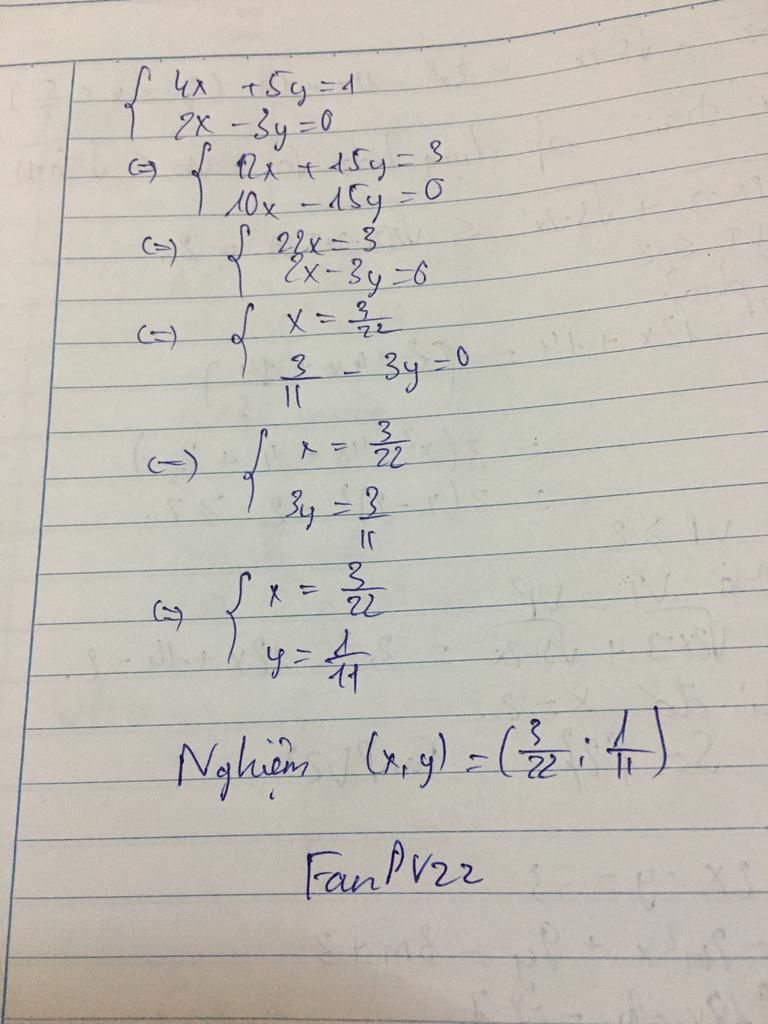 { 4x + 5y = 1
2x - 3y = 0
(=) { 12x + 15y = 3
10x - 15y = 0
(=) { 22x = 3
2x - 3y = 0
(=) { x = 3/22
3/11 - 3y = 0
(=) { x = 3/22
3y = 3/11
(=) { x = 3/22
y = 1/11
Nghiệm (x, y) = (3/22 ; 1/11)
FanPV22